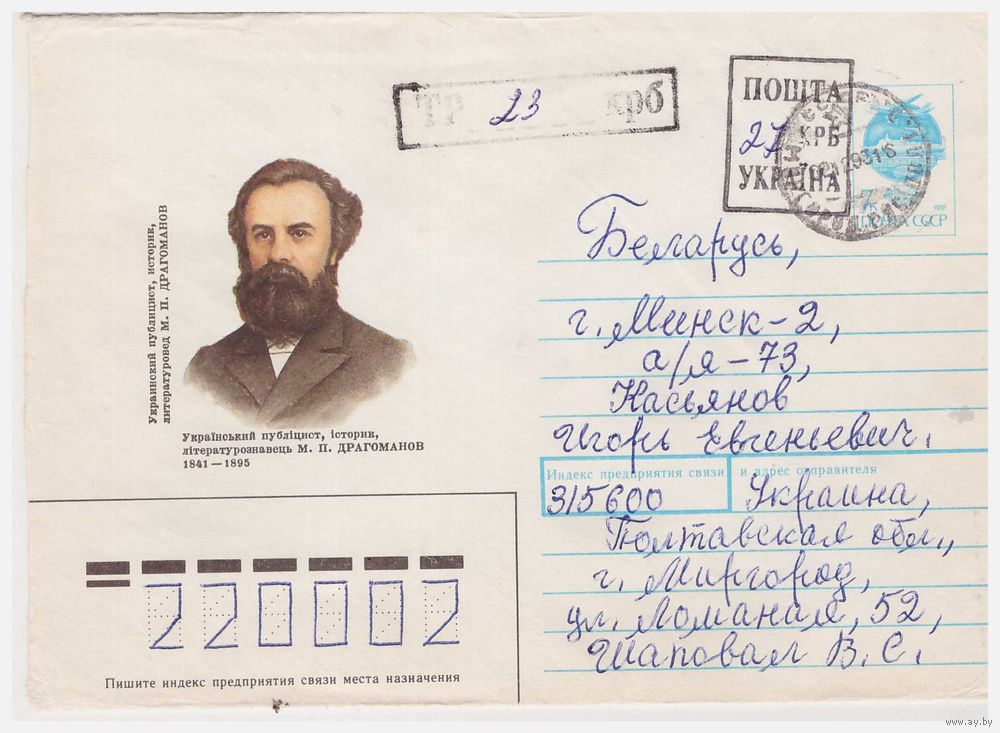 ТР 23 крб
ПОШТА
27 КРБ
УКРАЇНА
7К
1991
ПОЧТА СССР
Украинский публицист, историк,
литературовед М. П. ДРАГОМАНОВ
Український публіцист, історик,
літературознавець М. П. ДРАГОМАНОВ
1841—1895
Беларусь,
г. Минск-2,
а/я-73,
Касьянов
Игорь Евгеньевич.
Индекс предприятия связи и адрес отправителя
315600 Украина,
Полтавская обл.,
г. Миргород,
ул. Ломаная, 52,
Шаповал В. С.
220002
Пишите индекс предприятия связи места назначения
www.ay.by